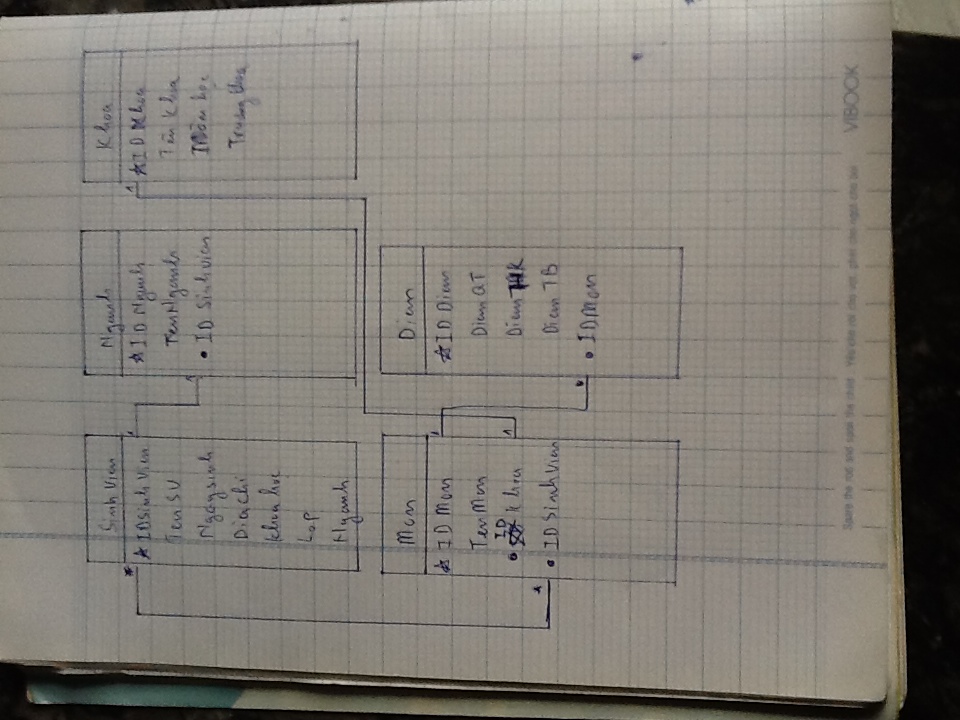 Sinh Vien
☆ IDSinh Vien
Ten SV
Ngaysinh
Diachi
Khoa học
Lop
Nganh
Nganh
☆ ID Nganh
TenNganh
• ID Sinhvien
Khoa
☆ ID Khoa
Tên Khoa
học
Truong khoa
Mon
☆ ID Mon
TenMon
• ID Khoa
• IDSinhVien
Diem
☆ ID Diem
Diem QT
Diem
Diem TB
• IDMon
1
1
1
1
1
*
*
Spare the rod and spoil the child . Yêu cho roi cho vọt, ghét cho ngọt cho bùi
VIBOOK